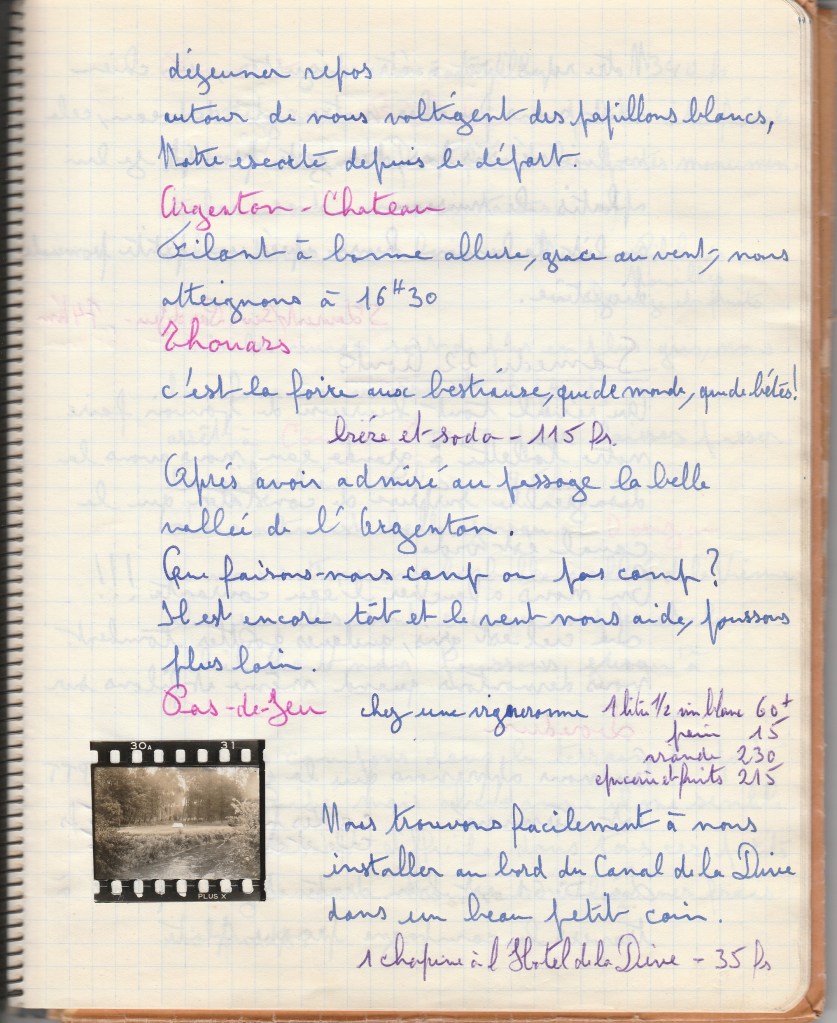 déjeuner repos
autour de nous voltigent des papillons blancs,
Notre escorte depuis le départ.
Argenton-Chateau
Filant à bonne allure, grace au vent, nous
atteignons à 16H30
Thouars
c'est la foire aux bestiause, que de monde, que de bétés!
bière et soda - 115 fs.
Aprés avoir admiré au passage la belle
vallée de l'Argenton.
Que faisons-nous camp ou pas camp?
Il est encore tôt et le vent nous aide, poussons
plus loin.
Pas-de-Jeu chez une vigneronne 1 litre 1/2 vin blanc 60f
pain 15
viande 230
epicerie et fruits 215
30A 31
Nous trouvons facilement à nous
installer au bord du Canal de la Dive
dans un beau petit coin.
PLUS X
1 chopine à l'Hotel de la Dive - 35 fs